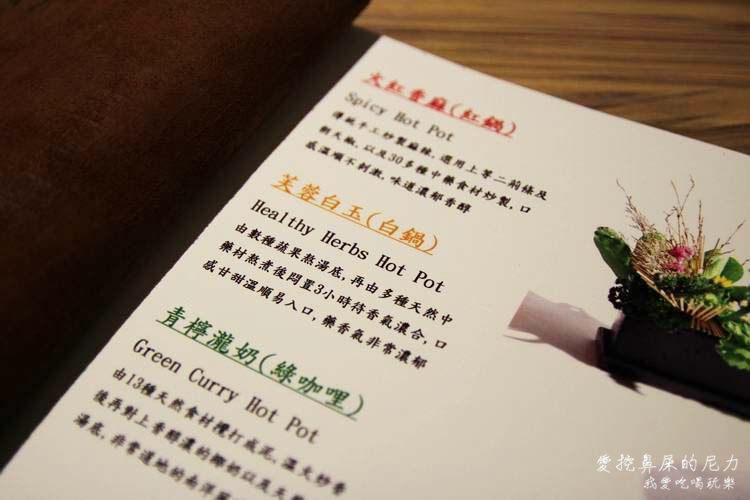 大紅香麻(紅鍋)
Spicy Hot Pot
傳統手工炒製麻辣,選用上等二荊條及
朝天椒,以及30多種中藥食材炒製,口
感溫順不刺激,味道濃郁香醇
芙蓉白玉(白鍋)
Healthy Herbs Hot Pot
由數種蔬果熬湯底,再由多種天然中
藥材熬煮後悶置3小時待香氣濃合,口
感甘甜溫順易入口,藥香氣非常濃郁
青檸瀧奶(綠咖哩)
Green Curry Hot Pot
由13種天然食材攪打成泥,溫火炒香
後再對上香醇濃的椰奶以及天然
湯底,非常道地的南洋風
愛挖鼻屎的尼力
我愛吃喝玩樂